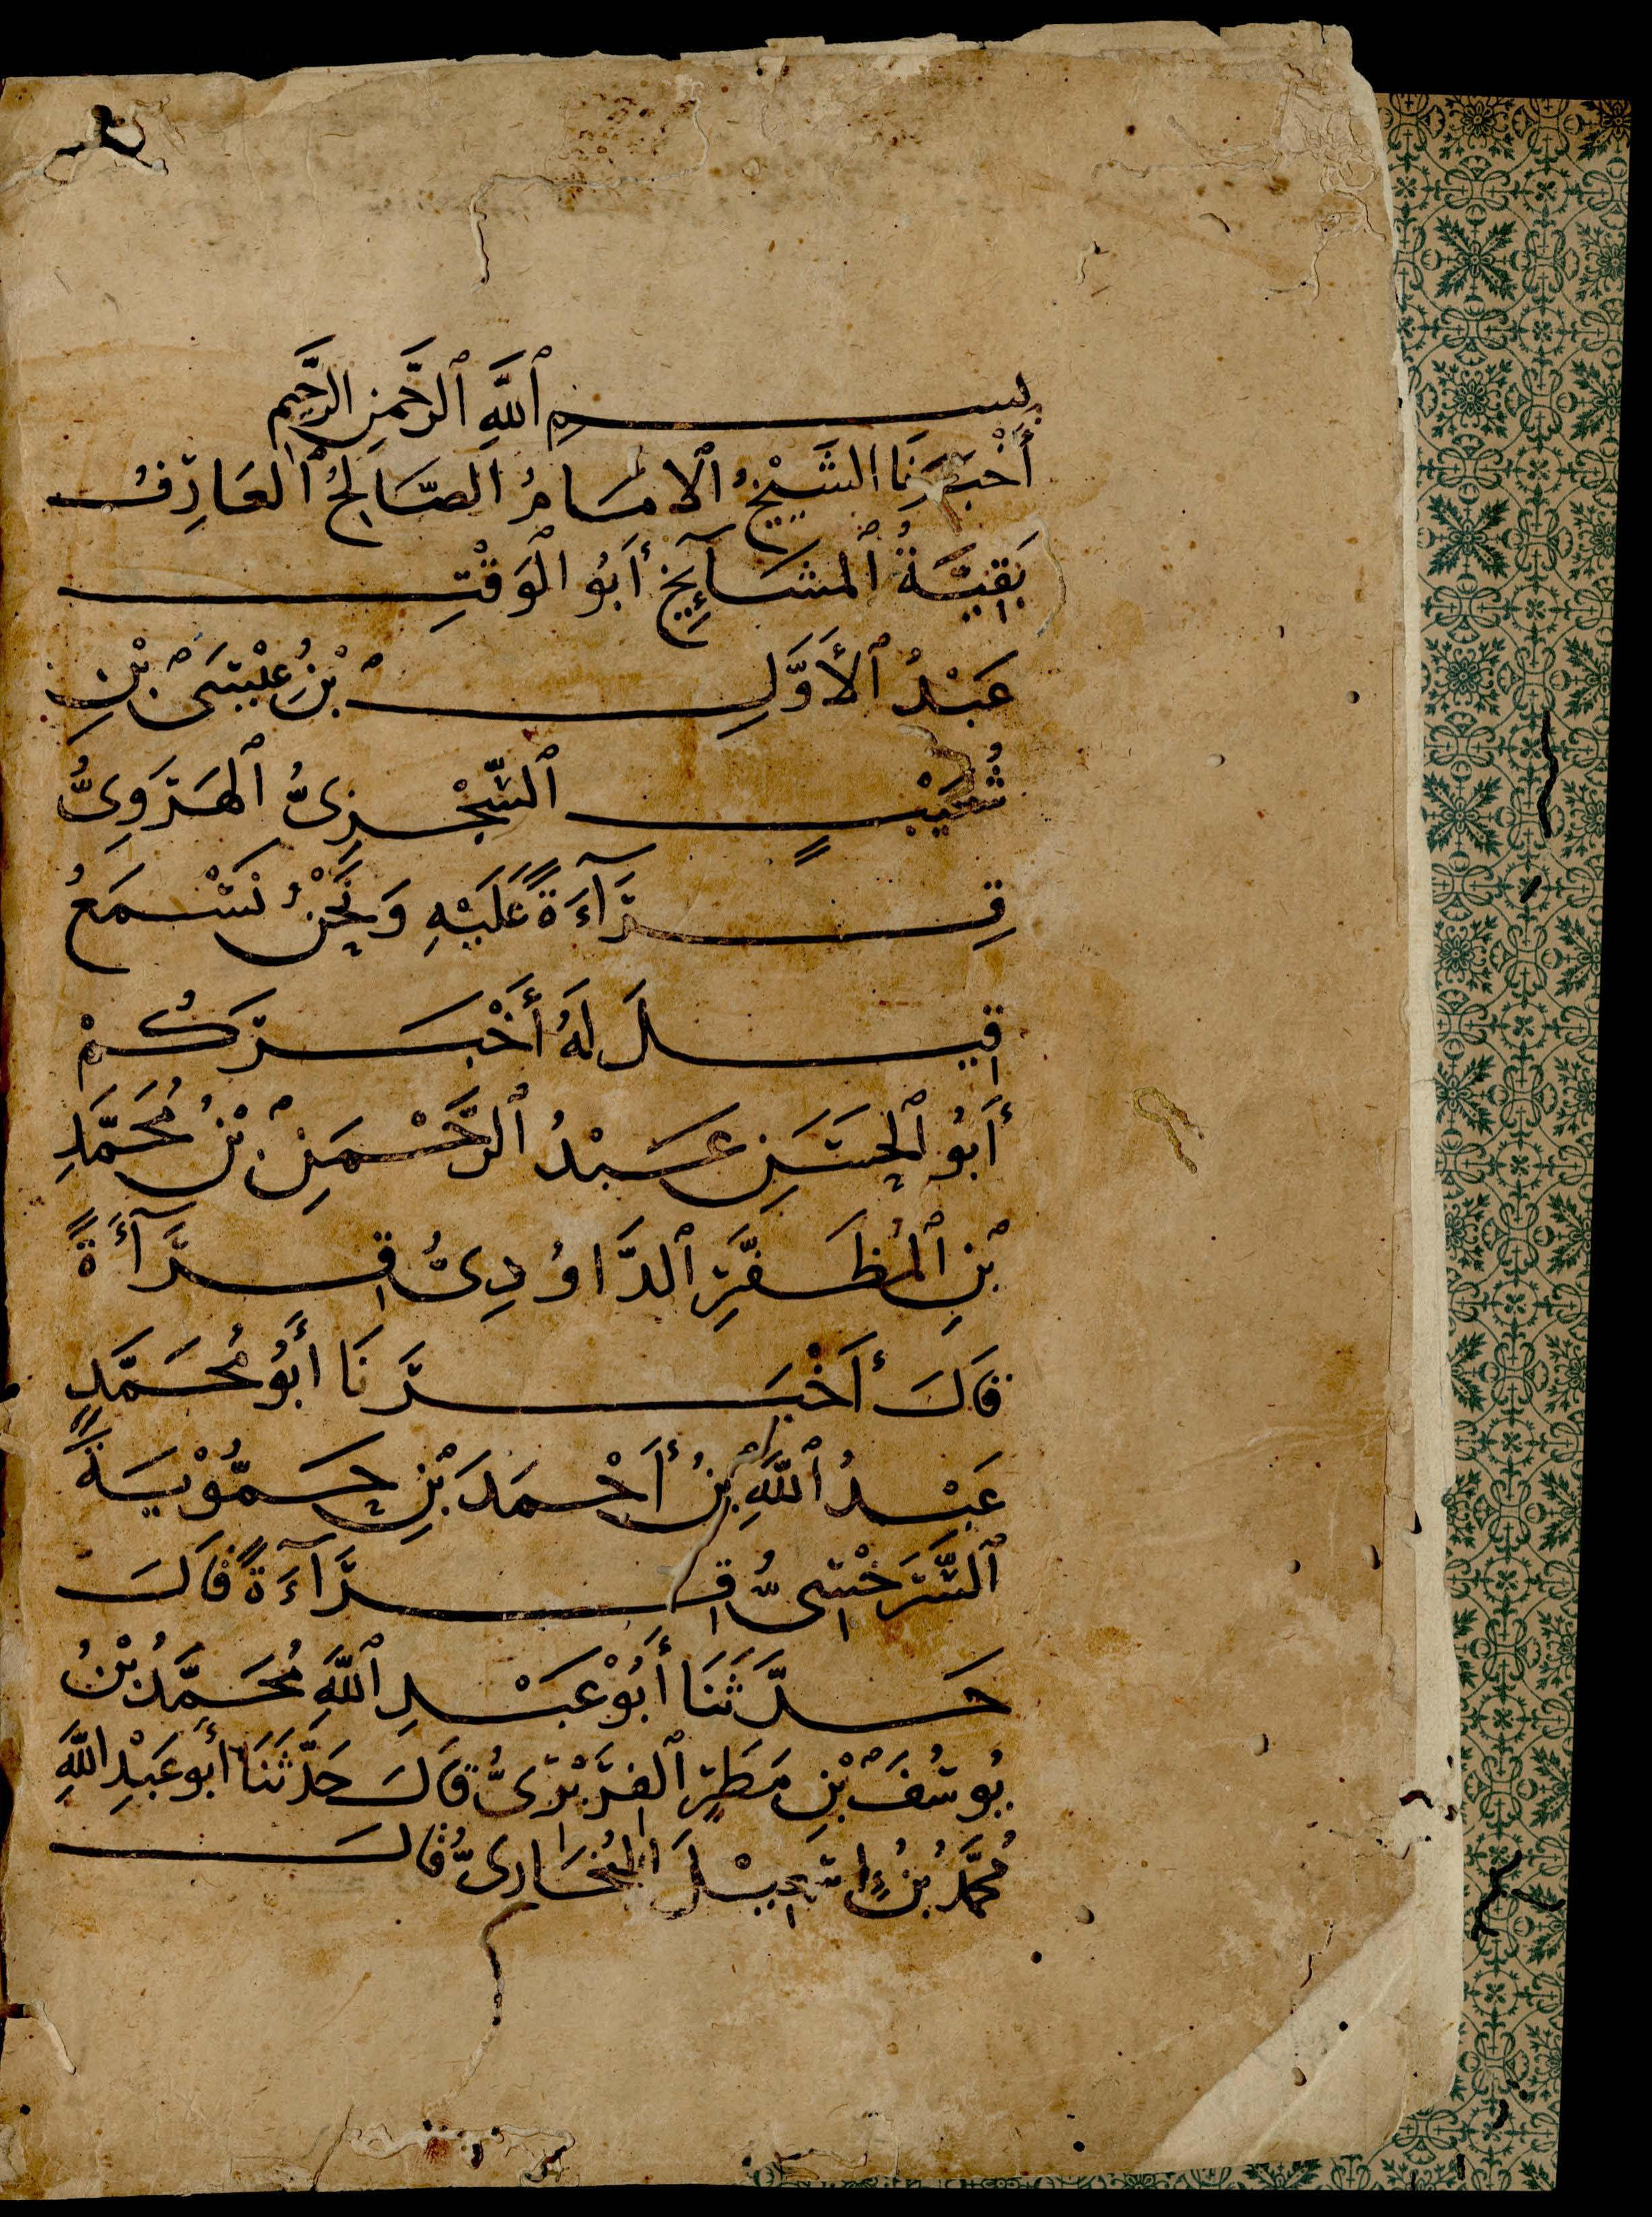 بِسمِ ٱللَّهِ ٱلرَّحْمَنِ الرَّحِيمِ
أَخْبَرَنَا الشَّيْخُ ٱلامَامُ ٱلصَّالِحُ ٱلعَارِفُ
بَقِيَّةُ ٱلمشَآيِخِ أَبُو الْوَقْتِ
عَبْدُ ٱلأَوَّلِ بْنُ عِيْسَى بْنِ
شُعَيْبٍ ٱلسِّجْزِىُّ ٱلهَرَوِىُّ
قِرَآءَةً عَلَيْهِ وَنَحْنُ نَسْمَعُ
قِيلَ لَهُ أَخْبَرَكُمْ
أَبُو ٱلحَسَنِ عَبْدُ ٱلرَّحْمَنِ بْنُ مُحَمَّدِ
بْنِ ٱلمُظَفَّرِ ٱلدَّاوُدِىُّ قِرَآءَةً
قَالَ أَخْبَرَنَا أَبُو مُحَمَّدٍ
عَبْدُ ٱللَّهِ بْنُ أَحْمَدَ بْنِ حَمُّوْيَةَ
ٱلسَّرَخْسِىُّ قِرَآءَةً قَالَ
حَدَّثَنَا أَبُوْ عَبْدِ ٱللَّهِ مُحَمَّدُ بْنُ
يُوسُفَ بْنِ مَطَرٍ ٱلفِرَبْرِىُّ قَالَ حَدَّثَنَا أَبُو عَبْدِ اللَّهِ
مُحَمَّدُ بْنُ إِسْمَعِيْلَ البُخَارِىُّ قَالَ